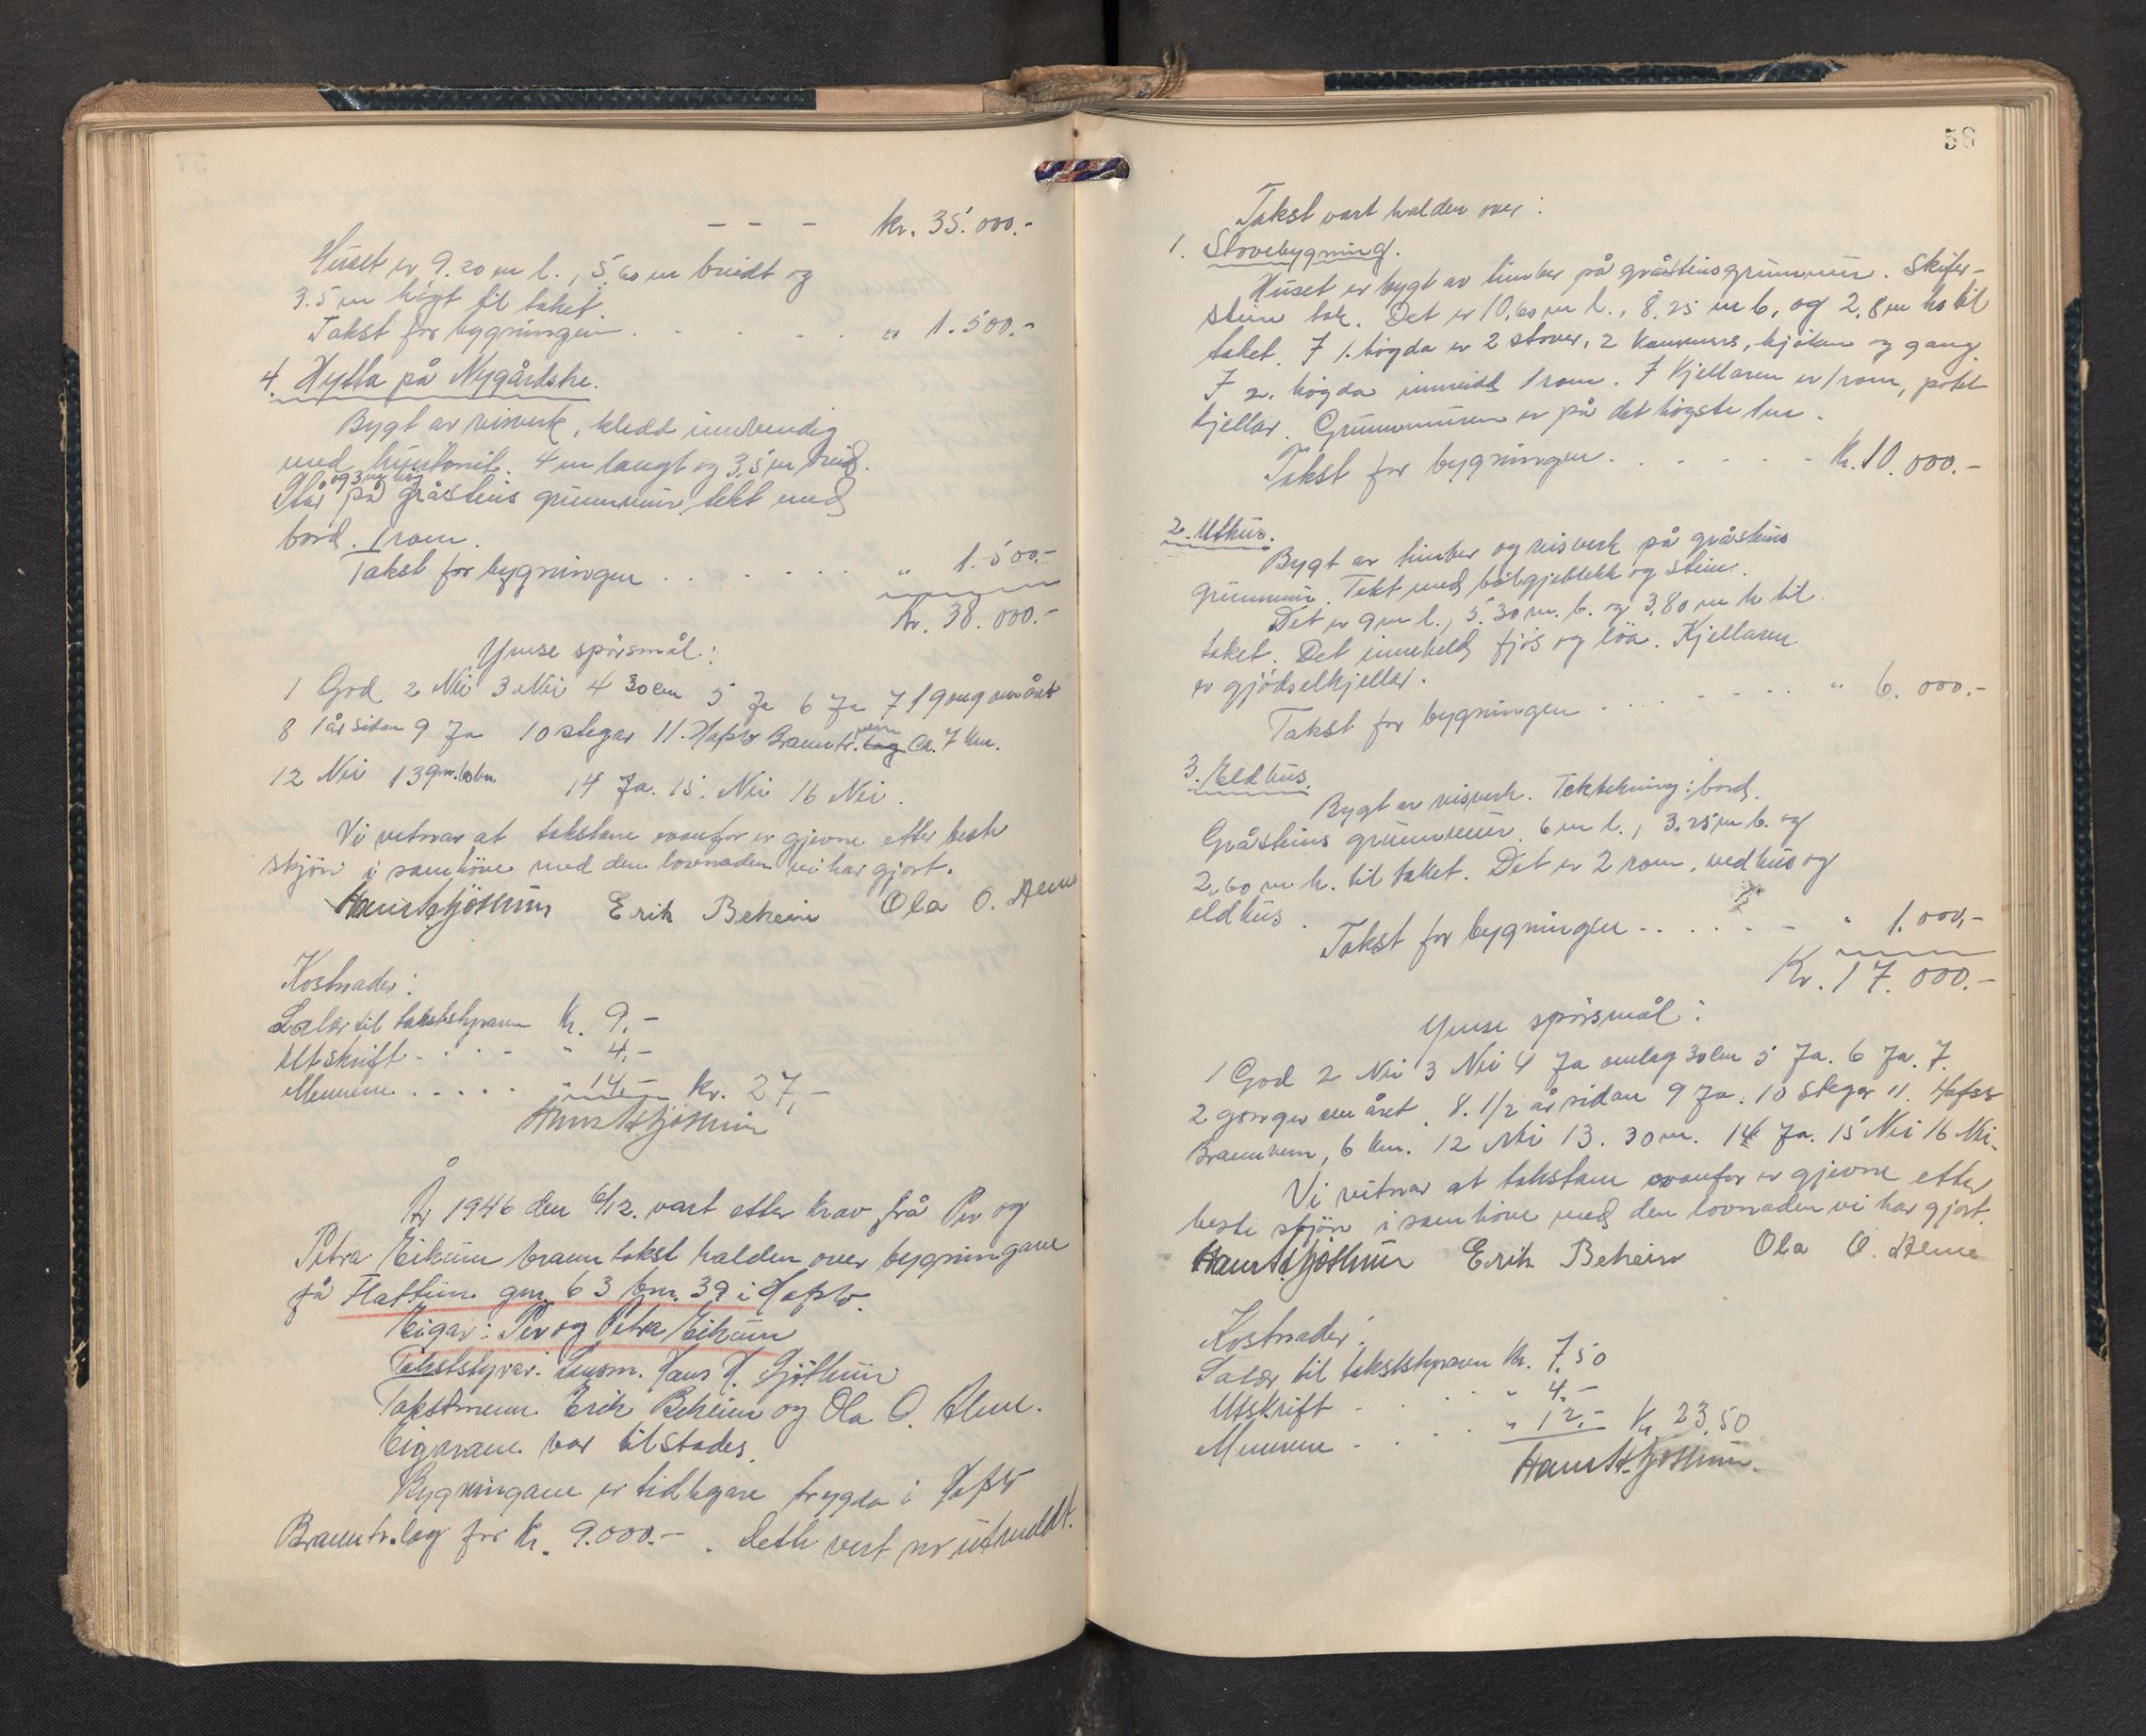 - - - kr. 35.000.-
Huset er 9.20 m l., 5.60 m breidt og
3.5 m högt til taket.
Takst for bygningen . . . . . " 1.500.-
4. Hytta på Nygårdstre.
Bygt av reisverk, kledd innvendig
med huntonit. 4 m langt og 3,5 m breid
og 3 m hög.
Står på gråsteins grunnmur, tekt med
bord. 1 rom.
Takst for bygningen . . . . . . " 1.500.-
Kr. 38.000.-
Ymse spörsmål:
1 God 2 Nei 3 Nei 4 30 cm 5 Ja 6 Ja 7 1 gong om året
8 1 år sidan 9 Ja 10 stegar 11. Hafslo Branntr. lag ca. 7 km.
12 Nei 13 14 Ja. 15. Nei 16 Nei.
Vi vitnar at takstane ovanfor er gjevne etter beste
skjön i samhöve med den lovnaden vi har gjort.
Hans H. Gjöthun Erik Beheim Ola O. Alme
Kostnader:
Salær til takststyraren Kr. 9,-
Utskrift . . . . " 4,-
Mennene . . . . . " 14,- kr. 27,-
Hans H. Gjöthun
År 1946 den 6/12. vart etter krav frå Per og
Petra Eikum branntakst halden over bygningane
på Flattun gnr. 63 bnr. 39 i Hafslo.
Eigar: Per og Petra Eikum
Takststyrar: Lensm. Hans H. Gjöthun
Takstmenn: Erik Beheim og Ola O. Alme.
Eigarane var tilstades.
Bygningane er tidlegare trygda i Hafslo
Branntr.lag for Kr. 9.000.-. Dette vert no utmeldt.
58
Takst vart halden over:
1. Stovebygning.
Huset er bygt av timber på gråsteinsgrunnmur. Skifer-
stein tak. Det er 10,60 m l., 8.25 m b, og 2,8 m h til
taket. I 1. högda er 2 stover, 2 kammers, kjöken og gang.
I 2. högda innreidd 1 rom. I kjellaren er 1 rom, potet-
kjellar. Grunnmuren er på det högste 1 m.
Takst for bygningen . . . . . . Kr. 10.000.-
2. Uthus.
Bygt av timber og reisverk på gråsteins
grunnmur. Tekt med bölgjeblekk og stein.
Det er 9 m l., 5.30 m. b. og 3,80 m h til
taket. Det inneheld fjös og löa. Kjellaren
er gjödselkjellar.
Takst for bygningen . . . . . . . " 6.000.-
3. Eldhus.
Bygt av reisverk. Taktekning: bord.
Gråsteins grunnmur. 6 m l., 3.25 m b. og
2,60 m h. til taket. Det er 2 rom, vedhus og
eldhus.
Takst for bygningen . . . . . . " 1.000,-
Kr. 17.000.-
Ymse spörsmål:
1 God 2 Nei 3 Nei 4 Ja omlag 30 cm 5 Ja. 6 Ja. 7.
2 gonger om året. 8. 1/2 år sidan 9 Ja. 10 Stegar 11. Hafslo
Brannvern, 6 km. 12 Nei 13. 30 m. 14 Ja. 15 Nei 16 Nei.
Vi vitnar at takstane ovanfor er gjevne etter
beste skjön i samhöve med den lovnaden vi har gjort.
Hans H. Gjöthun Erik Beheim Ola O. Alme
Kostnader:
Salær til takststyraren Kr. 7,50
Utskrift . . . . " 4.-
Mennene . . . . " 12.- Kr. 23,50
Hans H. Gjöthun.